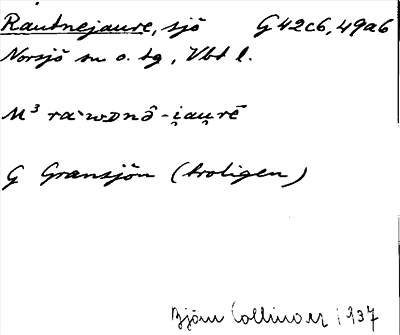 Rautnejaure, sjö G 42c6, 49a6
Norsjö sn o. tg, Vbt l.
M³ ra·wᴅnô-i̯au̯rē
G Gransjön (troligen)
Björn Collinder 1937